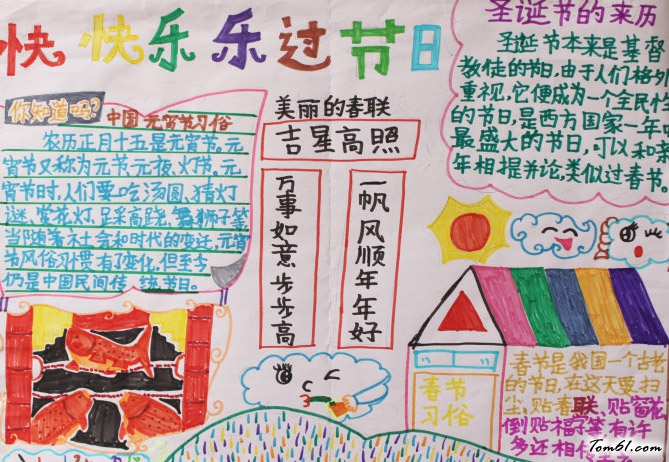 快快乐乐过节日
圣诞节的来历
圣诞节本来是基督
教徒的节日,由于人们格外
重视,它便成为一个全民
的节日,是西方国家一年
最盛大的节日,可以和
年相提并论,类似过春节。
你知道吗?
中国元宵节习俗
农历正月十五是元宵节。元
宵节又称为元节、元夜、灯节。元
宵节时,人们要吃汤圆、猜灯
谜、赏花灯、足采高跷、舞狮子等
当随着社会和时代的变迁,元宵
节风俗习惯有了变化,但至今
仍是中国民间传统节日。
美丽的春联
吉星高照
万事如意步步高
一帆风顺年年好
春节
习俗
春节是我国一个古
的节日,在这天要扫
尘,贴春联、贴窗花
倒贴福子等有许
多还相
Tom61.com